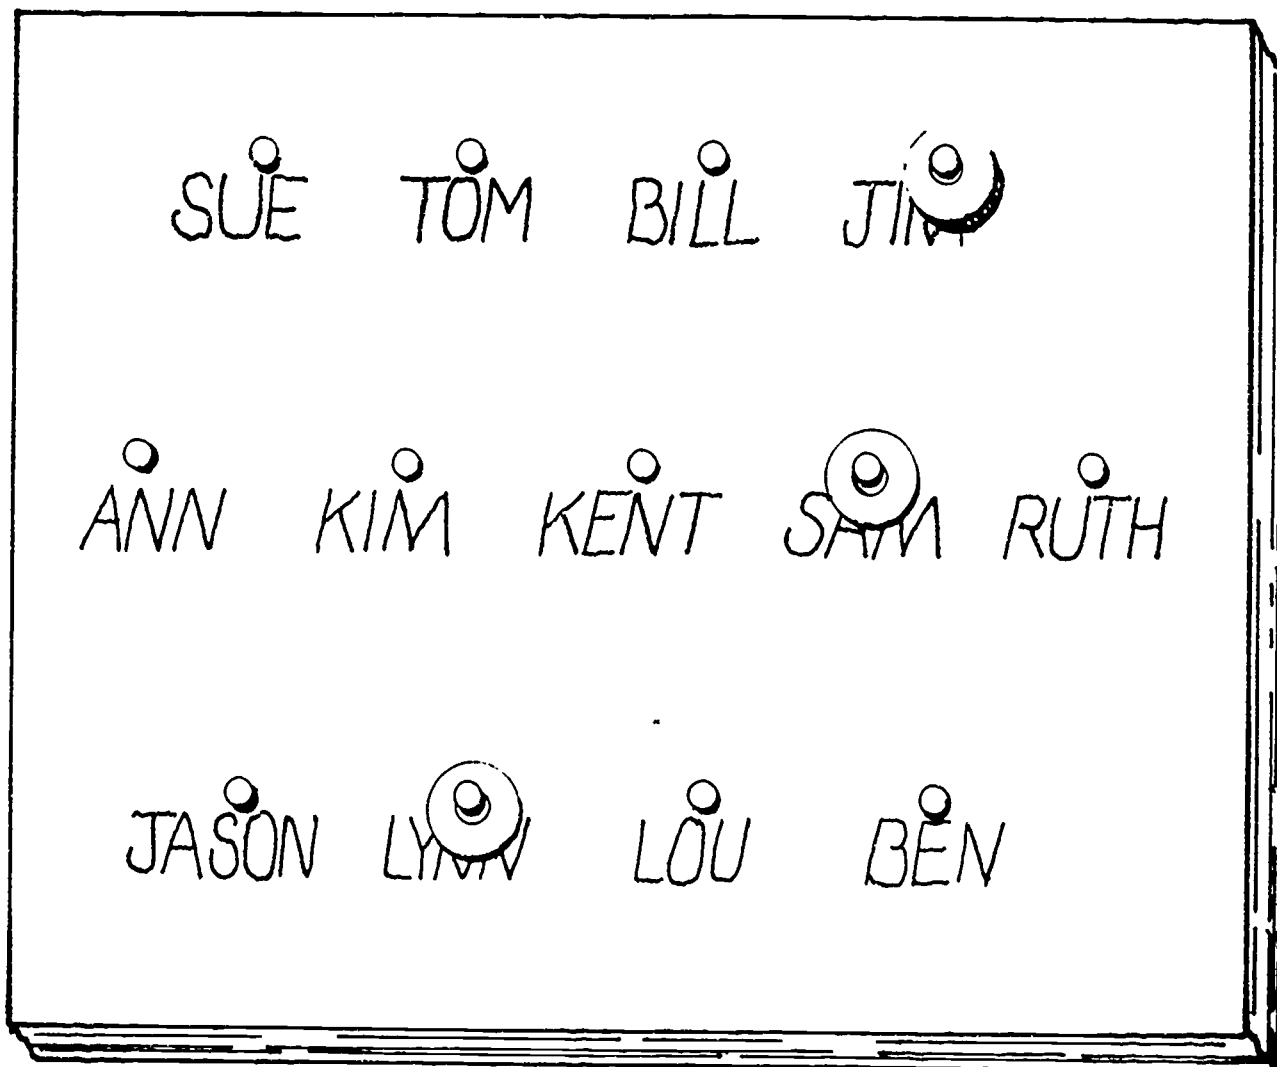 SUE TOM BILL JIM
ANN KIM KENT SAM RUTH
JASON LYNN LOU BEN